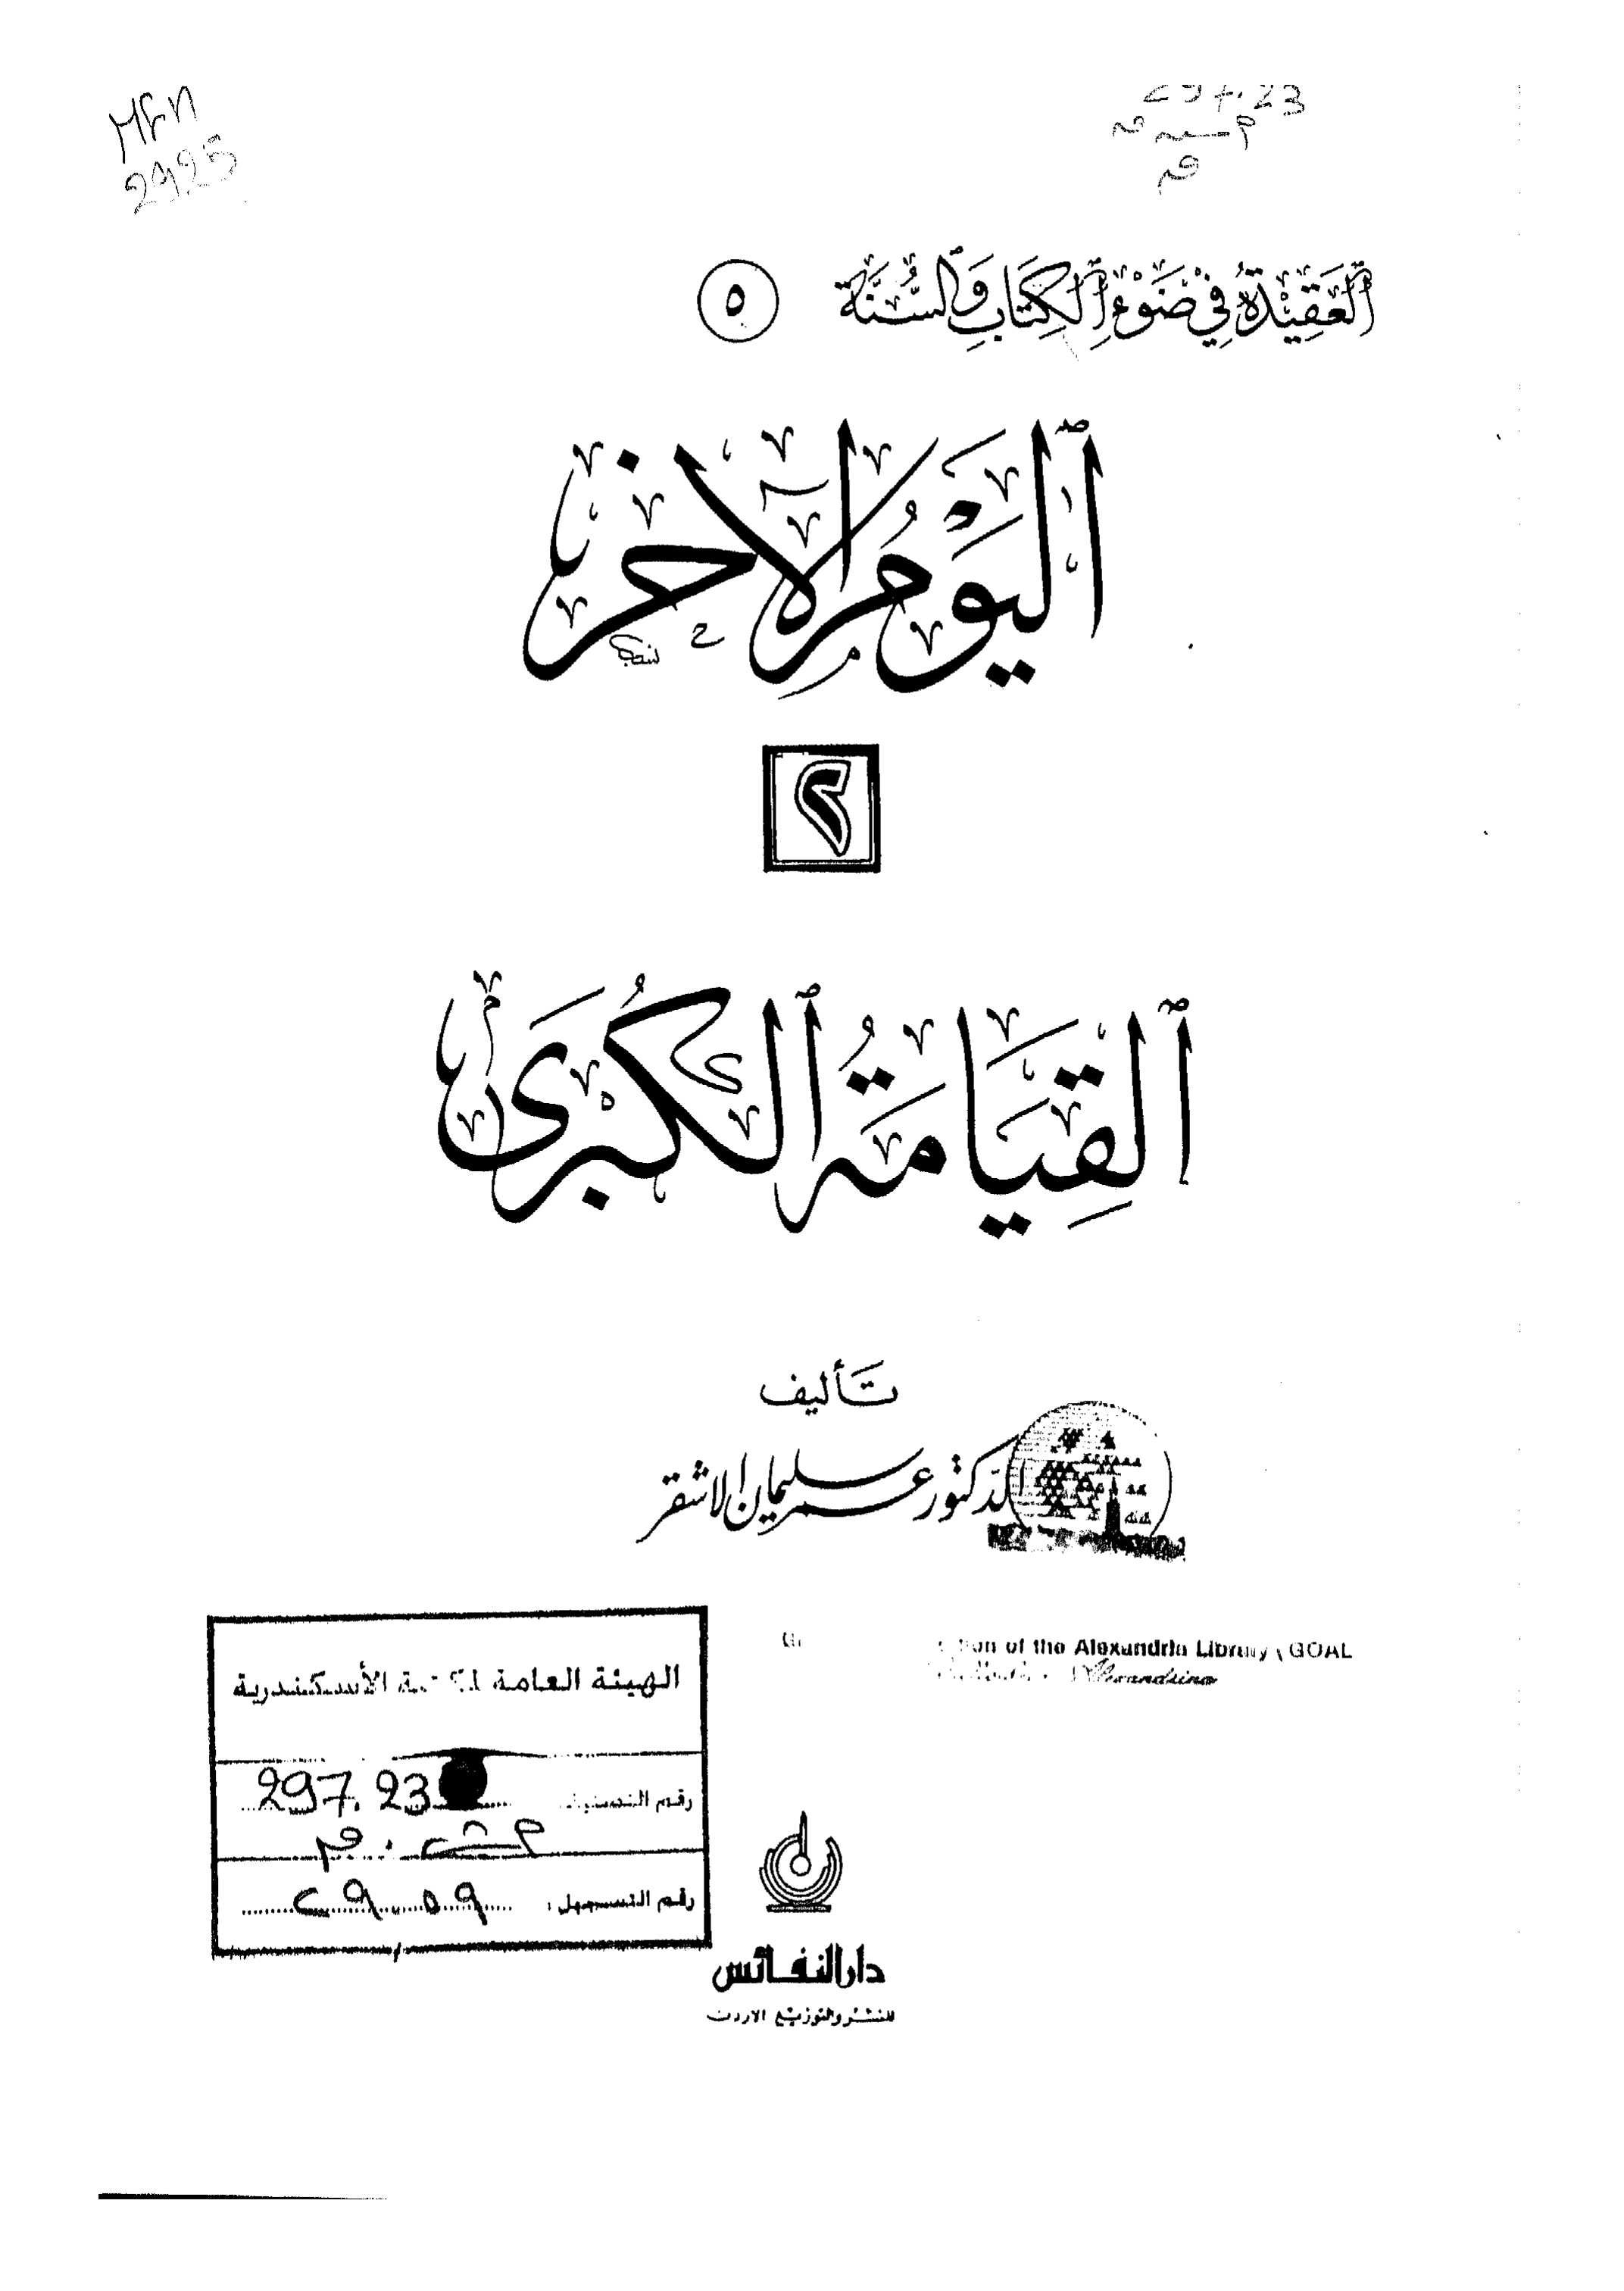 MFN
2925
297.23
العَقِيْدَةُ فِيْ ضَوْءِ الْكِتَابِ وَالسُّنَّةِ ٥
اَلْيَوْمُ الْآخِرُ
٢
اَلْقِيَامَةُ الْكُبْرَىٰ
تَأليف
الدكتور عمر سليمان الأشقر
of the Alexandria Library (GOAL
Alexandrina
الهيئة العامة الأسكندرية
رقم التصنيف 297.23
رقم التسجيل: ٢٩٠٥٩
دار النفائس
للنشر والتوزيع الأردن